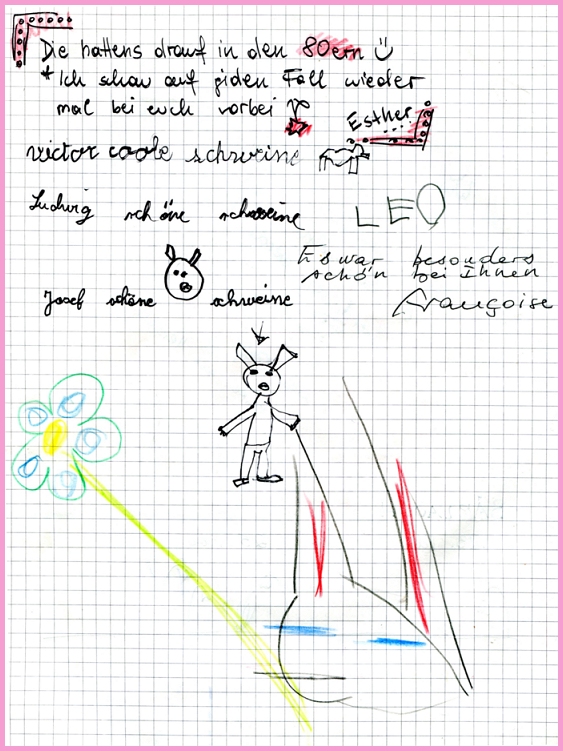 Die hattens drauf in den 80ern
* Ich schau auf jiden Fall wieder
mal bei euch vorbei
Esther
victor coole schweine
Ludwig schöne schweine
LEO
Es war besonders
schön bei Ihnen
Françoise
Josef schöne schweine